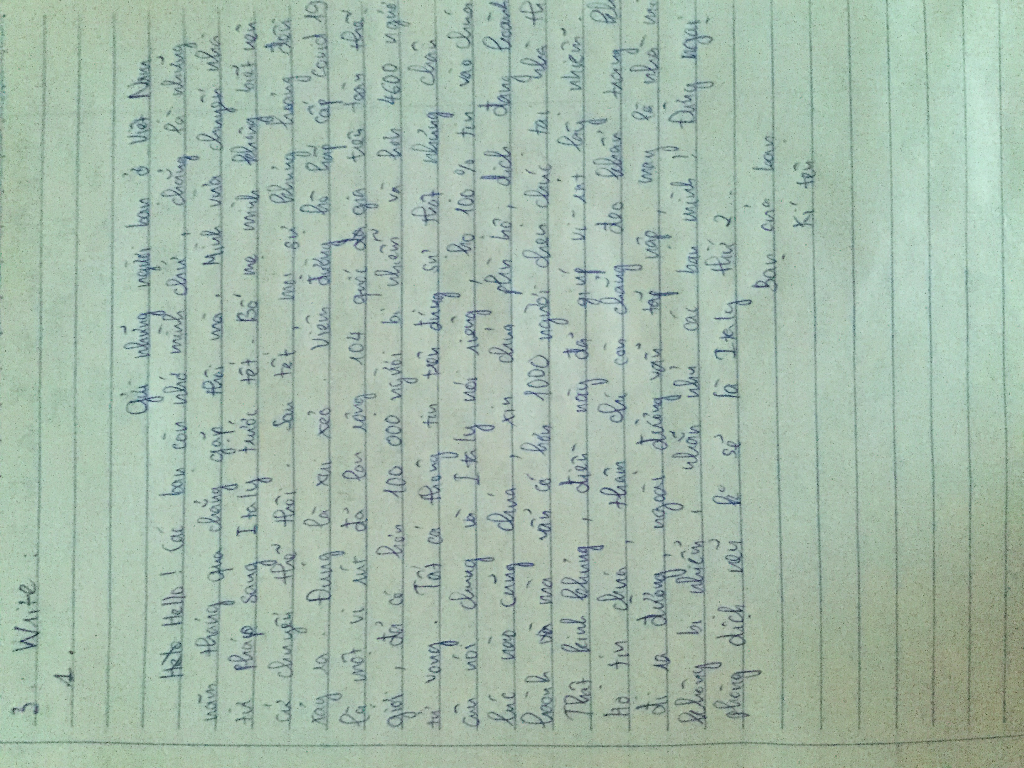 3. Write:
1.
Gửi những người bạn ở Việt Nam
Hello! Các bạn còn nhớ mình chứ, chẳng là những
năm tháng qua chẳng gặp thôi mà. Mình vừa chuyển nhà
từ Pháp sang Italy trước tết. Bố mẹ mình không biết nên
cứ chuyển thế thôi. Sau tết, mọi sự khủng hoảng đã
xảy ra. Đúng là xui xẻo. Viêm đường hô hấp cấp covid 19
là một vi rút đã lan rộng 104 quốc gia trên toàn thế
giới, đã có hơn 100 000 người bị nhiễm và hơn 4600 người
tử vong. Tất cả thông tin trên đúng sự thật nhưng chân
nói chung và Italy nói riêng, ko 100% tin vào chúa
lúc nào cũng chúa, xin chúa phù hộ, dịch đang hoành
hoành mà vẫn có hơn 1000 người chen chúc tại nhà th
Thật kinh khủng, điều này đã giúp vi rút lây nhiễm.
Họ tin chúa, thậm chí còn chẳng đeo khẩu trang kh
đi ra đường, ngoài đường vẫn tấp nập, may là nhà mì
không bị nhiễm, nhắn nhủ các bạn mình! Đừng ngại
phòng dịch nếu ko sẽ là Italy thứ 2.
Bạn của bạn
Kí tên